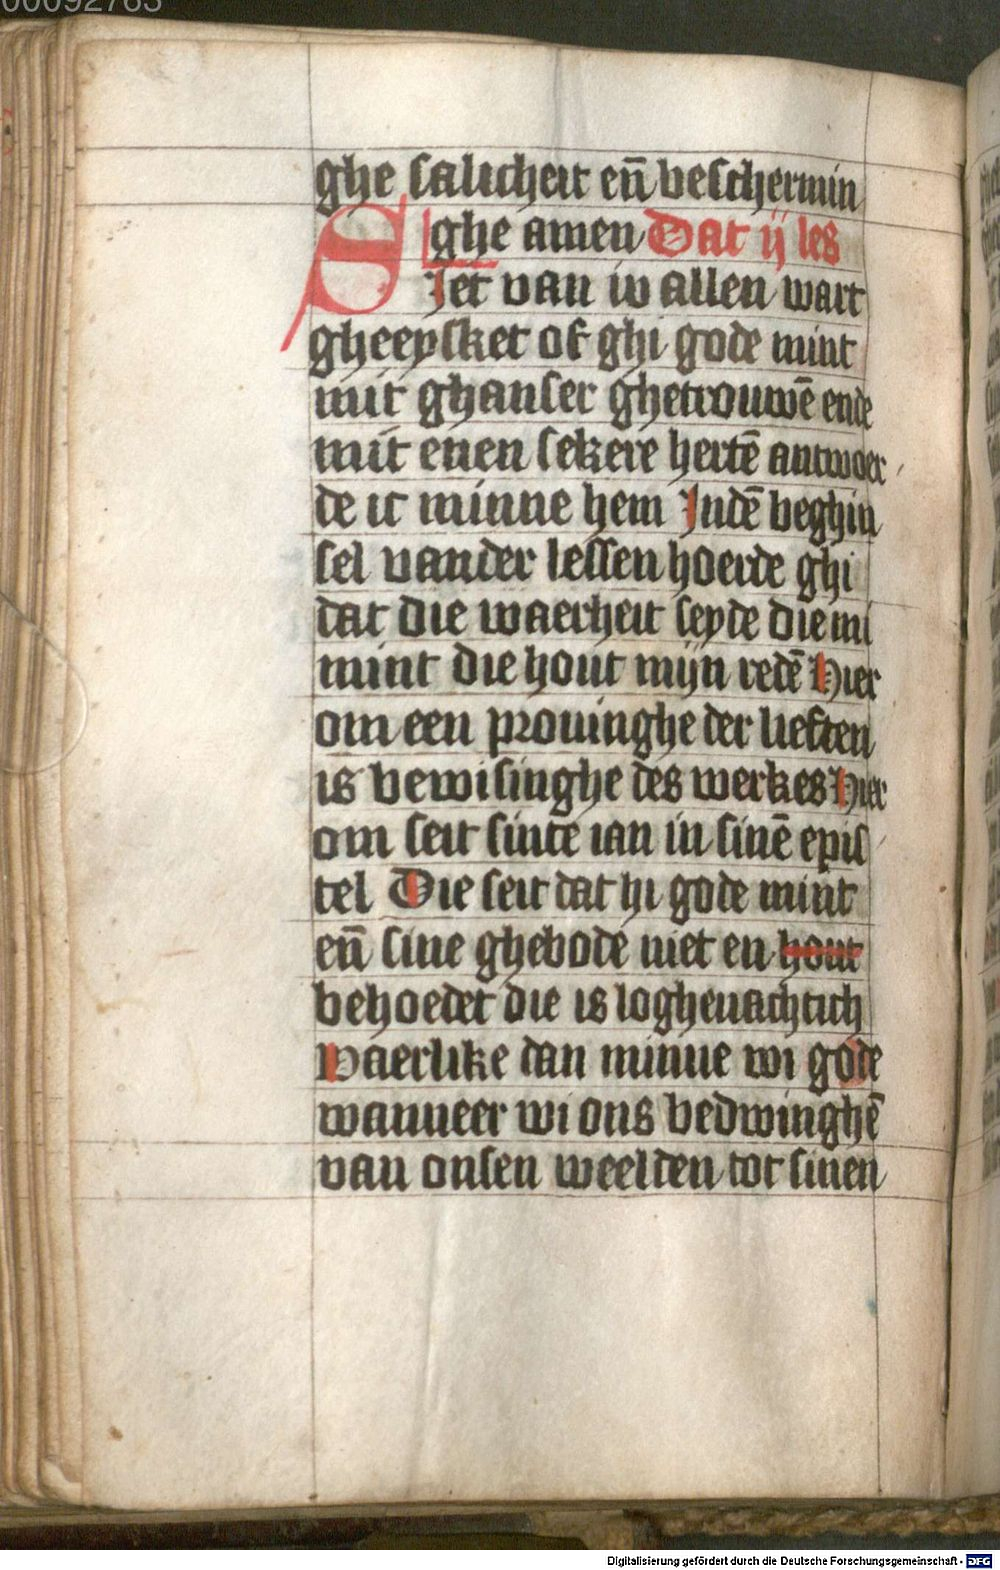 00092763
ghe salicheit en̄ beschermin
ghe amen Dat ij les
Siet van iv allen wart
gheeysket of ghi gode mint
mit ghanser ghetrouwē ende
mit enen sekere hertē antwoer
de ic minne hem Indē beghin
sel vander lessen hoerde ghi
dat die waerheit seyde die mi
mint die hout mijn redē Hier
om een prouinghe der lieften
is bewisinghe des werkes Hier
om seit sinte ian in sinē epis
tel Die seit dat hi gode mint
en̄ sine ghebode niet en hout
behoedet die is loghenachtich
Waerlike dan minne wi gode
wanneer wi ons bedwinghē
van onsen weelden tot sinen
Digitalisierung gefördert durch die Deutsche Forschungsgemeinschaft - DFG